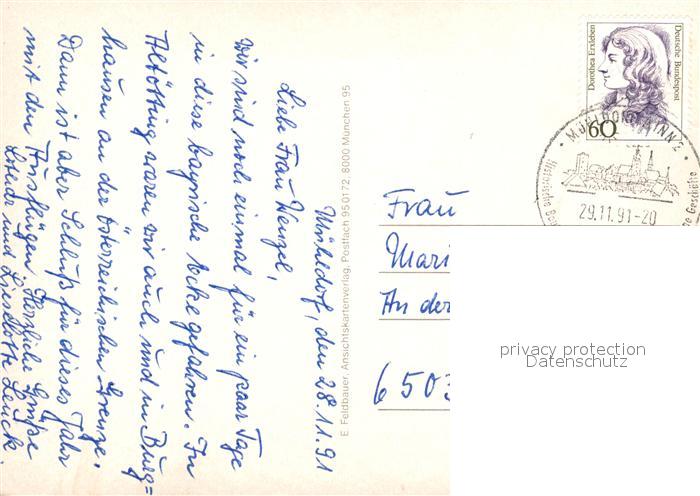 Mühldorf, den 28.11.91
Liebe Frau Wenzel,
wir sind noch einmal für ein paar Tage
in diese bayrische Ecke gefahren. In
Altötting waren wir auch und in Burg=
hausen an der österreichischen Grenze.
Dann ist aber Schluß für dieses Jahr
mit den Ausflügen. Herzliche Grüße
und Lieselotte Leuck.
E. Feldbauer, Ansichtskartenverlag, Postfach 950172, 8000 München 95
Dorothea Erxleben
Deutsche Bundespost
60
MÜHLDORF A INN 2
Historische
29.11.91-20
Frau
Mari
An der
6503
privacy protection
Datenschutz